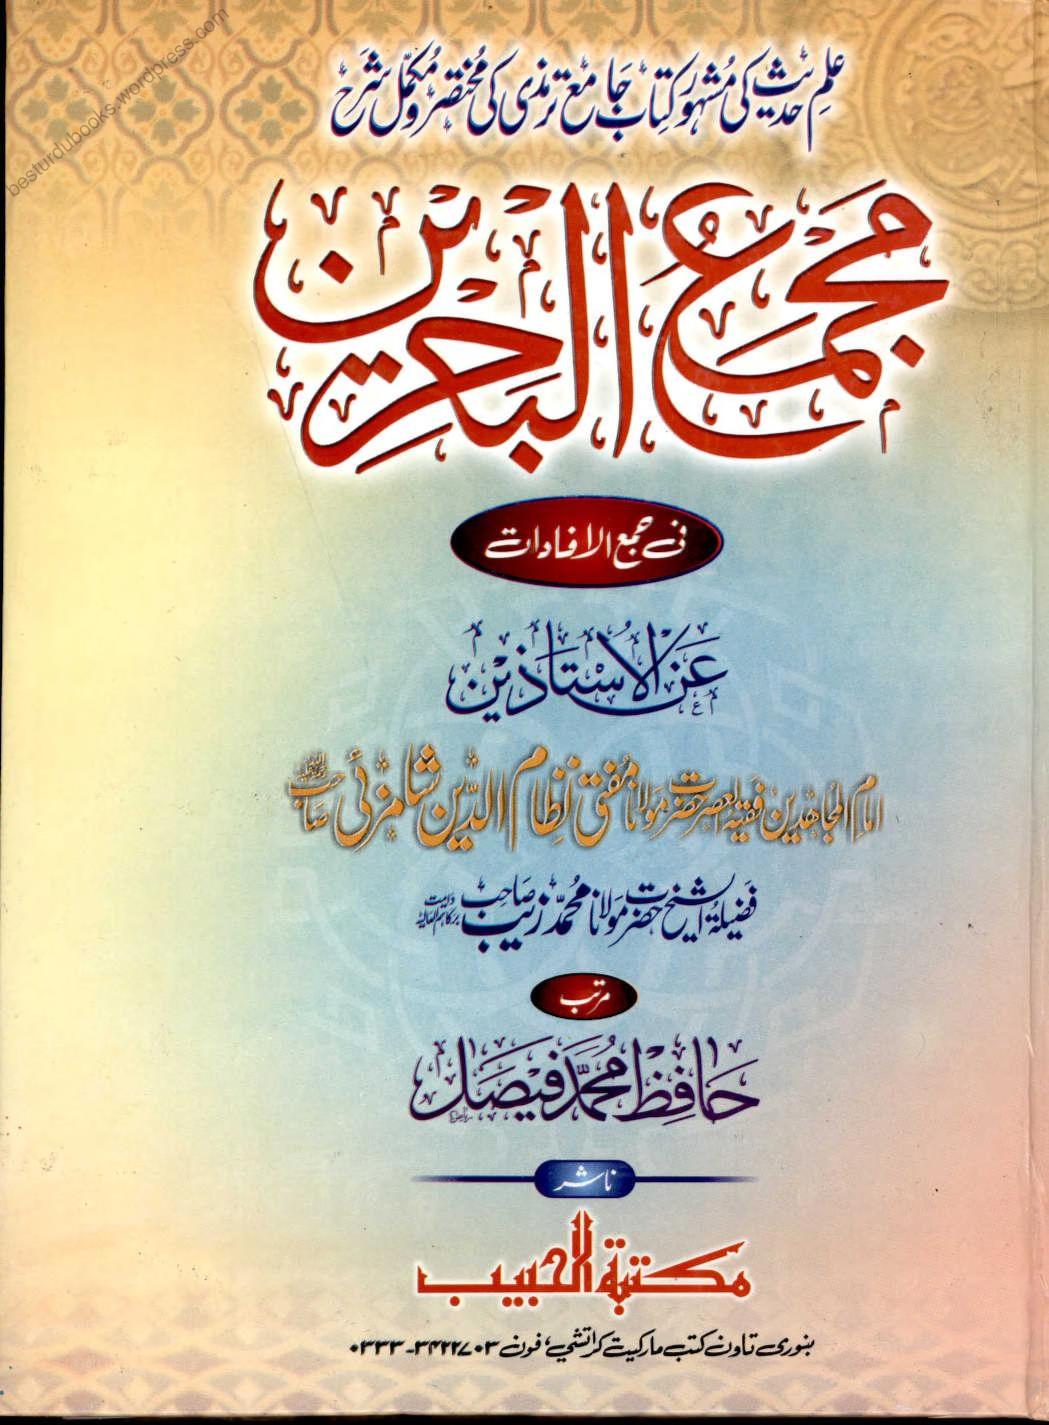 besturdubooks.wordpress.com
علمِ حدیث کی مشہور کتاب جامع ترمذی کی مختصر و مکمل شرح
مجمع البحرین
فی جمع الافادات
عن الاستاذین
امام المجاھدین فقیہ العصر حضرت مولانا مفتی نظام الدین شامزئی صاحب رحمہ اللہ
فضیلۃ الشیخ حضرت مولانا محمد زیب صاحب دامت برکاتہم العالیہ
مرتب
حافظ محمد فیصل
ناشر
مکتبة الحبیب
بنوری تاون کتب مارکیت کراتشي، فون ۰۳۳۳-۳۴۲۲۷۰۳